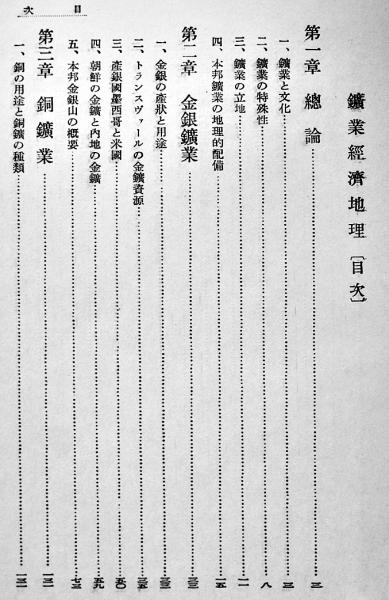 目次
鑛業經濟地理〔目次〕
第一章 總論……三
一、鑛業と文化……三
二、鑛業の特殊性……八
三、鑛業の立地……一一
四、本邦鑛業の地理的配備……一五
第二章 金銀鑛業……三三
一、金銀の產狀と用途……三三
二、トランスヴァールの金鑛資源……三五
三、產銀國墨西哥と米國……五〇
四、朝鮮の金鑛と內地の金鑛……五九
五、本邦金銀山の概要……七三
第三章 銅鑛業……一三一
一、銅の用途と銅鑛の種類……一三一